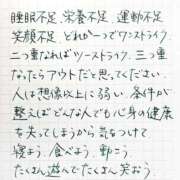 睡眠不足、栄養不足、運動不足
笑顔不足 どれか一つでワンストライク
二つ重なればツーストライク。三つ重
なったらアウトだと思ってください。
人は想像以上に弱い。条件が
整えばどんな人でも心身の健康
を失ってしまうから気をつけて
寝よう。食べよう。動こう。
たくさん遊んでたくさん笑おう。